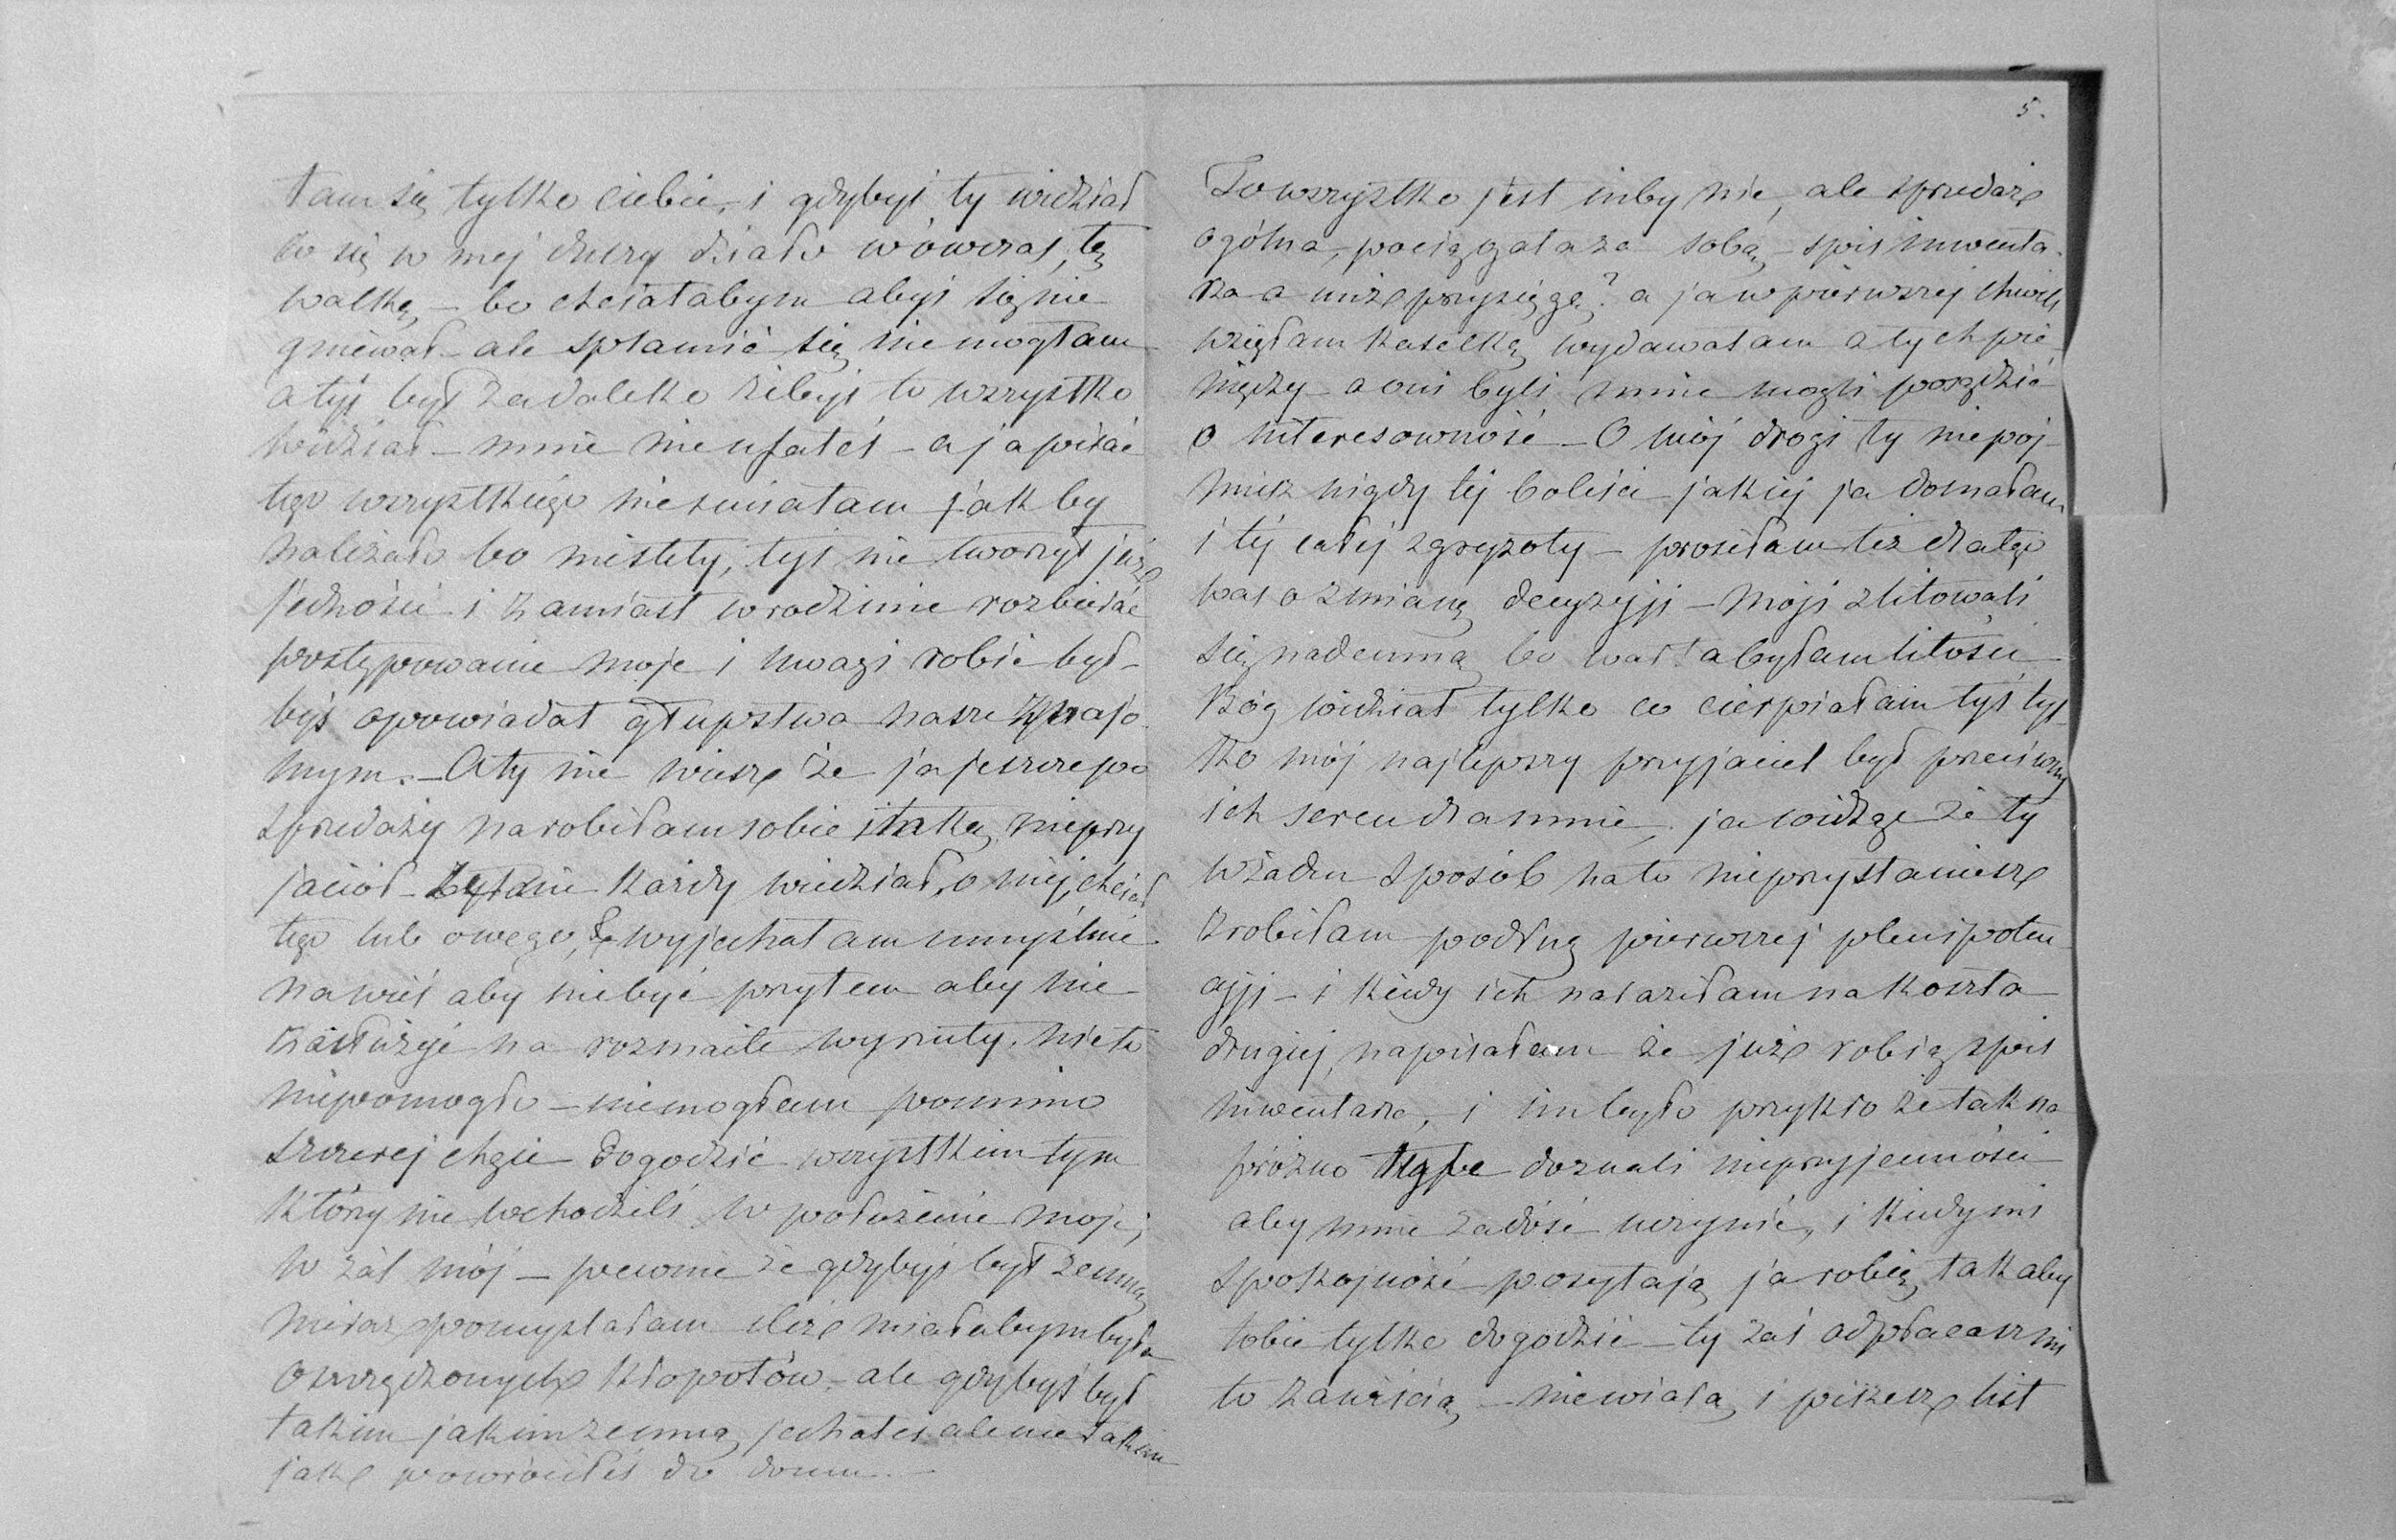 łam się tylko ciebie, i gdybyś ty widział
co się w mej duszy działo wówczas, tę
walkę, – bo chciałabym abyś się nie
gniewał – ale splamić się nie mogłam
a tyś był zadaleko żebyś to wszystko
widział – mnie nieufałeś – a ja pisać
tego wszystkiego nieśmiałam jak by
należało bo niestety, tyś nie tworzył już
jedności i zamiast w rodzinie rozbierać
postępowanie moje i uwagi robić był-
byś opowiadał głupstwa nasze znajo-
mym. – A ty nie wiesz że ja jeszcze po
sprzedaży narobiłam sobie nieprzy
jaciół – każdy wiedział o niej, chciał
tego lub owego, wyjechałam umyślnie
na wieś aby niebyć przytem aby nie
zasłużyć na rozmaite wyrzuty. nic to
niepomogło – niemogłam pomimo
szczerej chęci dogodzić wszystkim tym
który nie wchodzili w położenie moje,
w żal mój – pewnie że gdybyś był zemną
nieraz pomyślałam ileż miałabym była
oszczędzonych kłopotów – ale gdybyś był
takim jakim zemną jechałeś ale nie takim
jak powróciłeś do domu. –
5.
To wszystko jest niby nic, ale sprzedaż
ogólna, pociągała za sobą – spis inwenta-
rza a niż przysięgę? a ja w pierwszej chwili
wzięłam kasetkę wydawałam z tych pie
niędzy – a oni byli mnie mogli posądzić
o interesowność – O mój drogi ty niepoj-
miesz nigdy tej boleści jakiej ja doznałam
i tej całej zgryzoty – prosiłam też dlatego
was o zmianę decyzyji – moji zlitowali
się nademną bo warta byłam litości
Bóg widział tylko co cierpiałam tyś tyl-
ko mój najlepszy przyjaciel był przeciwny
ich sercu dla mnie, ja widząc że ty
w żaden sposób na to nieprzystaniesz
zrobiłam podług pierwszej plenipoten
cyji – i kiedy ich naraziłam na koszta
drugiej, napisałam że już robią spis
inwentarza, i im było przykro że tak na
próżno doznali nieprzyjemności
aby mnie zadość uczynić, i kiedy mi
spokojność posyłają ja robię tak aby
tobie tylko dogodzić – ty zaś odpłacasz mi
to zawiścią – niewiarą i piszesz list